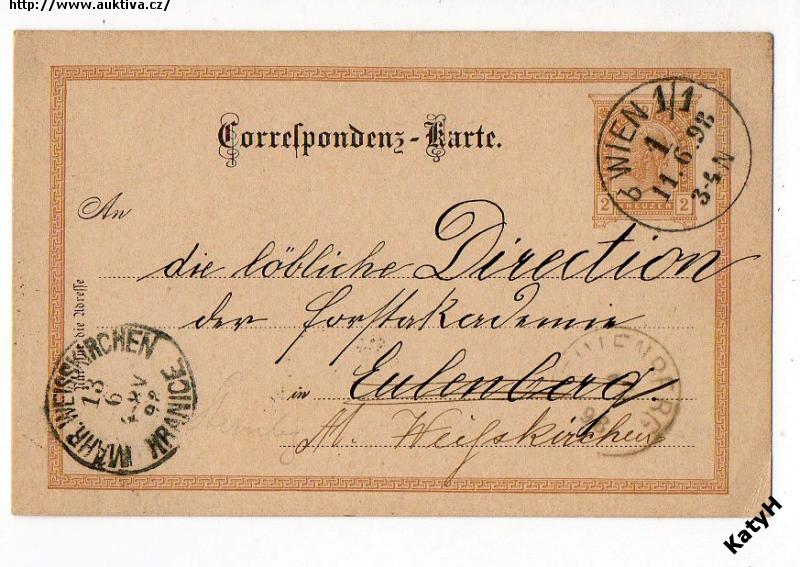 http://www.auktiva.cz/
Correspondenz-Karte.
b WIEN 1/1
1
11.6.98
3-4 N
2 KREUZER 2
An
die löbliche Direction
der Forstakademie
in Eulenberg.
M. Weißskirchen
Nur für die Adresse
MÄHR. WEISSKIRCHEN
13
6
98
HRANICE
KatyH